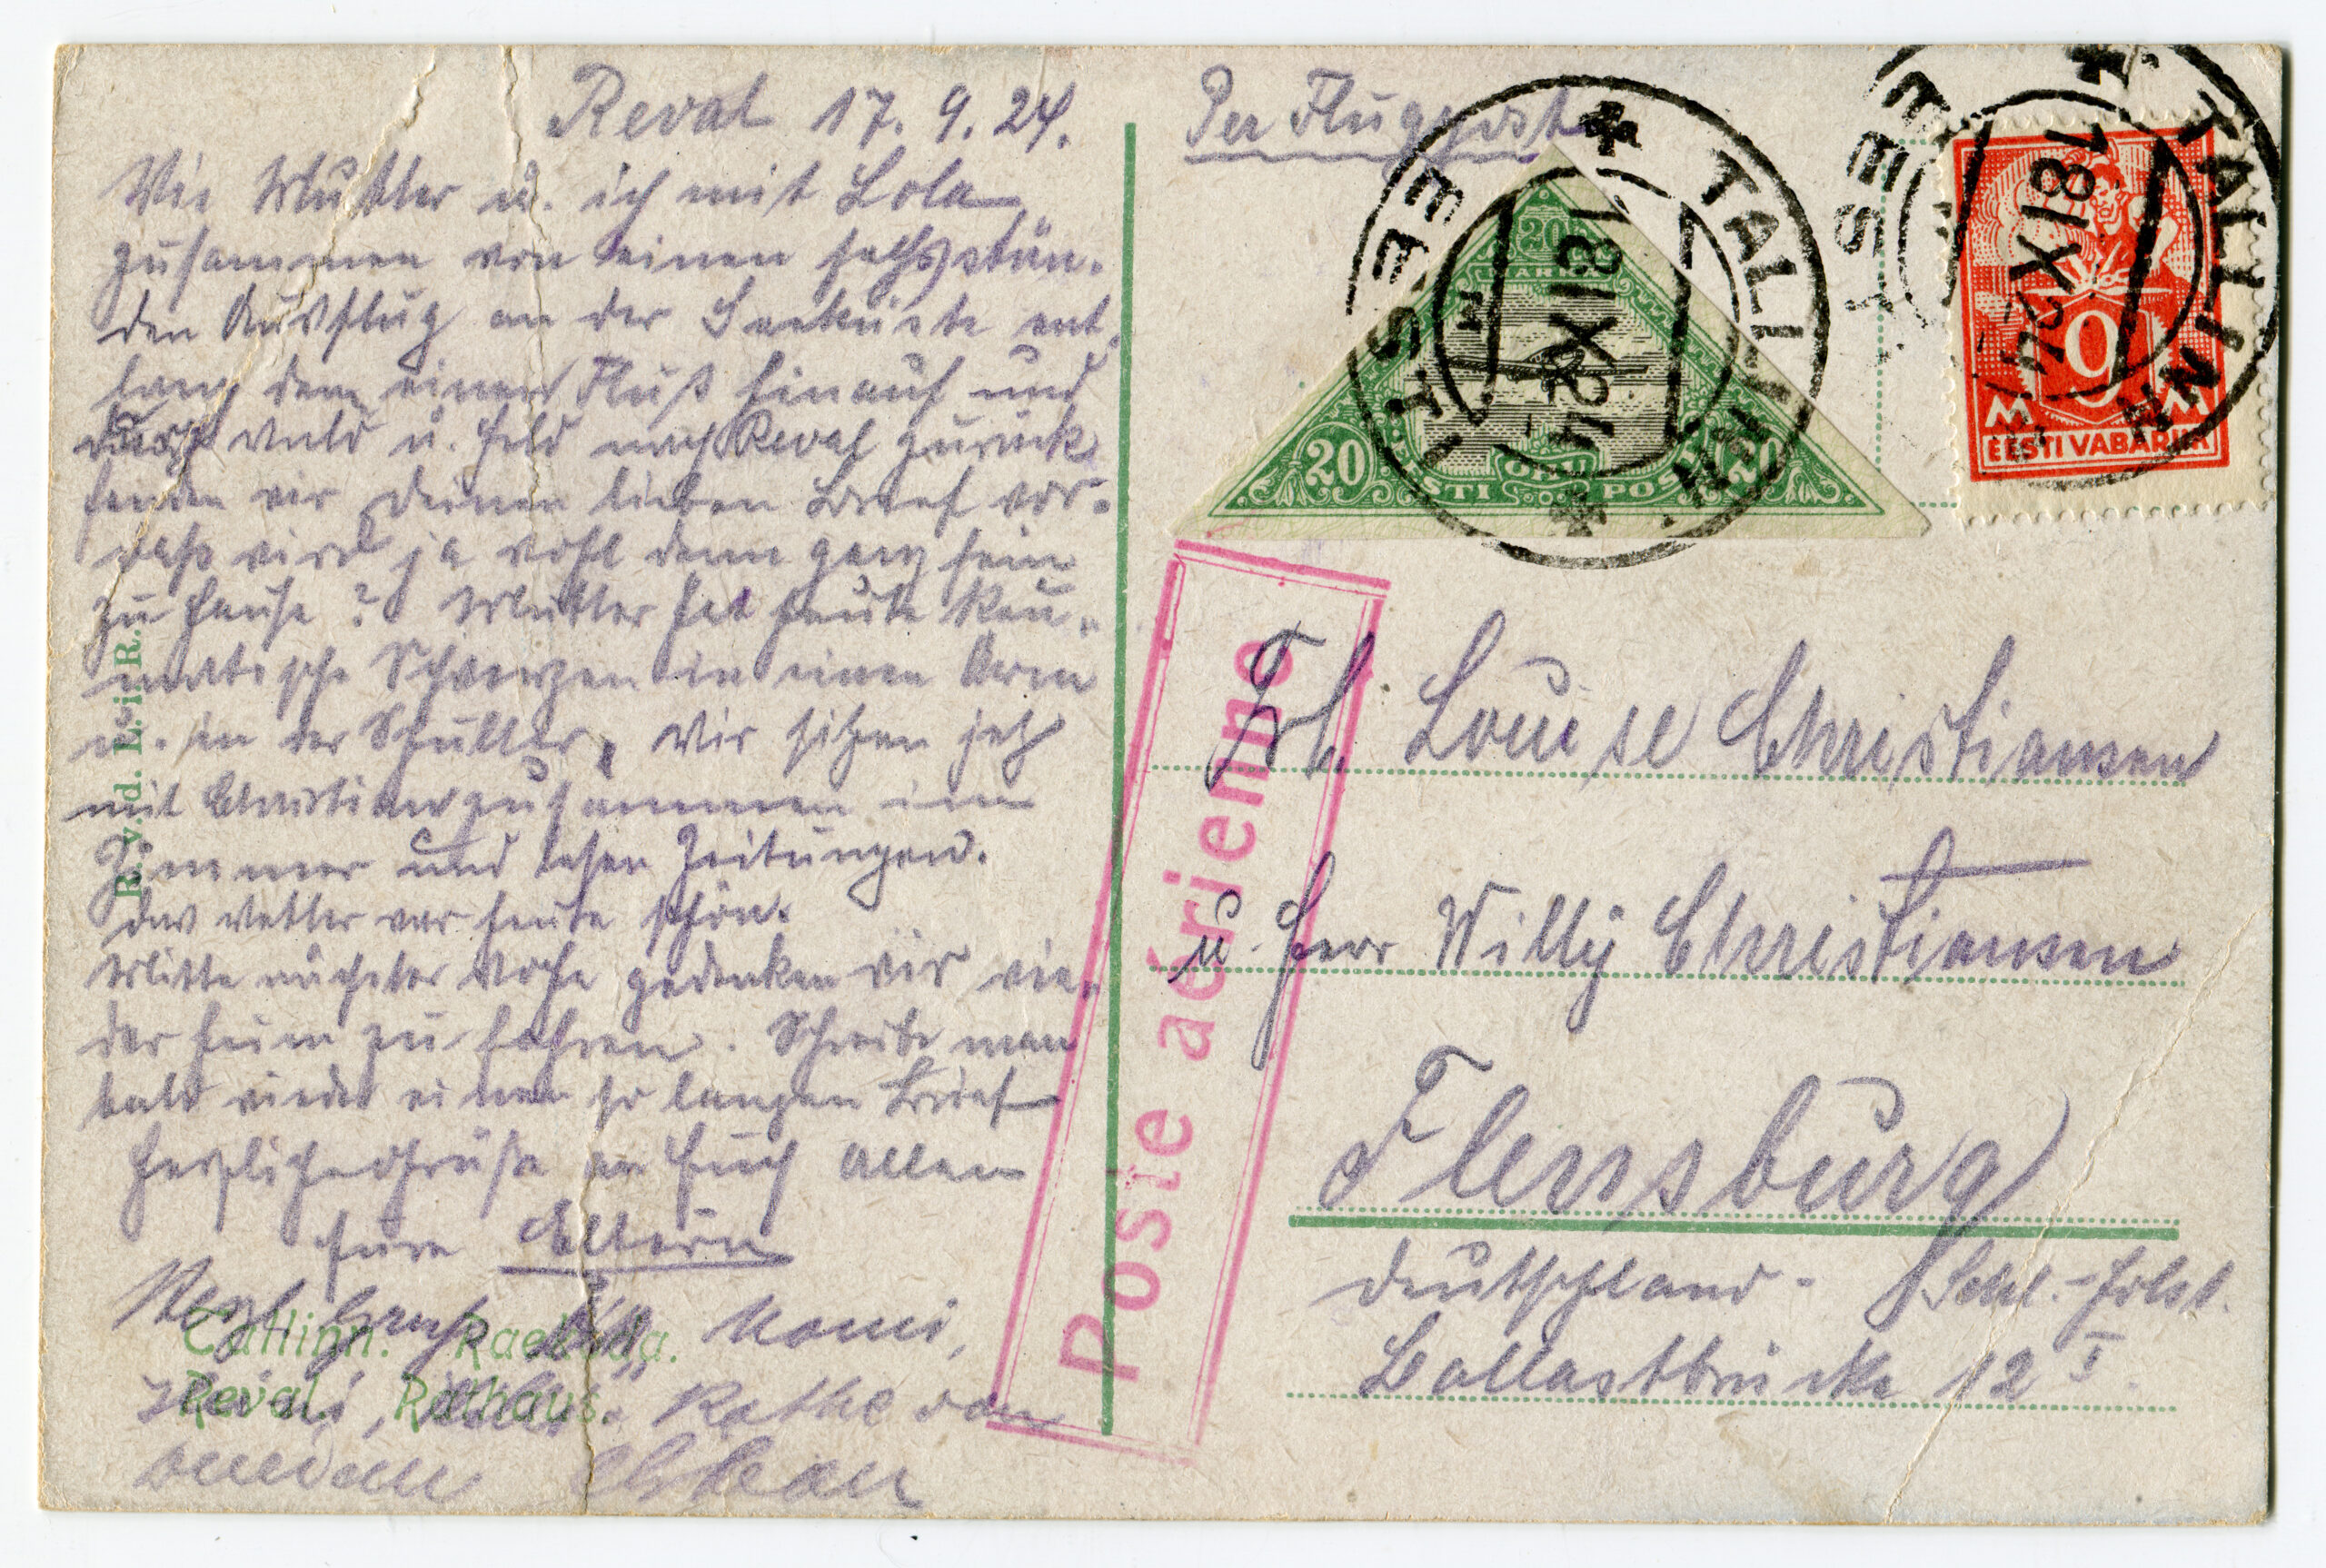 Reval 17. 9. 24.
Wie Mutter u. ich mit Lola
zusammen von einen sechsstün-
den Ausflug an der Seeküste ent-
lang dem einen Fluß hinauf und
durch Wald u. Feld nach Reval zurück
fanden wir Deinen lieben Brief vor.
daß wird ja wohl dann ganz fein
zu Hause? Mutter hat heute Reu-
matische Schmerzen in einen Arm
u. in der Schulter, wir sitzen jetz
mit Christian zusammen im
Zimmer und lesen Zeitungen.
das Wetter war heute schön.
Mitte nächster Woche gedenken wir wie-
der heim zu fahren. Schreibe man
bald wieder einen so langen Brief
herzliche Grüße an Euch Allen
Eure Eltern
Herzl.
Käthe von
Tallinn. Raekoda.
Reval, Rathaus.
R. v. d. L. i. R.
Per Flugpost
20
MARKA
20 20
EESTI ÕHU POST
EESTI * TALLINN *
18 IX 24
EESTI * TALLINN
18 IX 24
9
M M
EESTI VABARIIK
Poste aérienne
Frl. Louise Christiansen
u. Herr Willy Christiansen
Flensburg
Deutschland - Schl.-Holst.
Ballastbrücke 12 I.